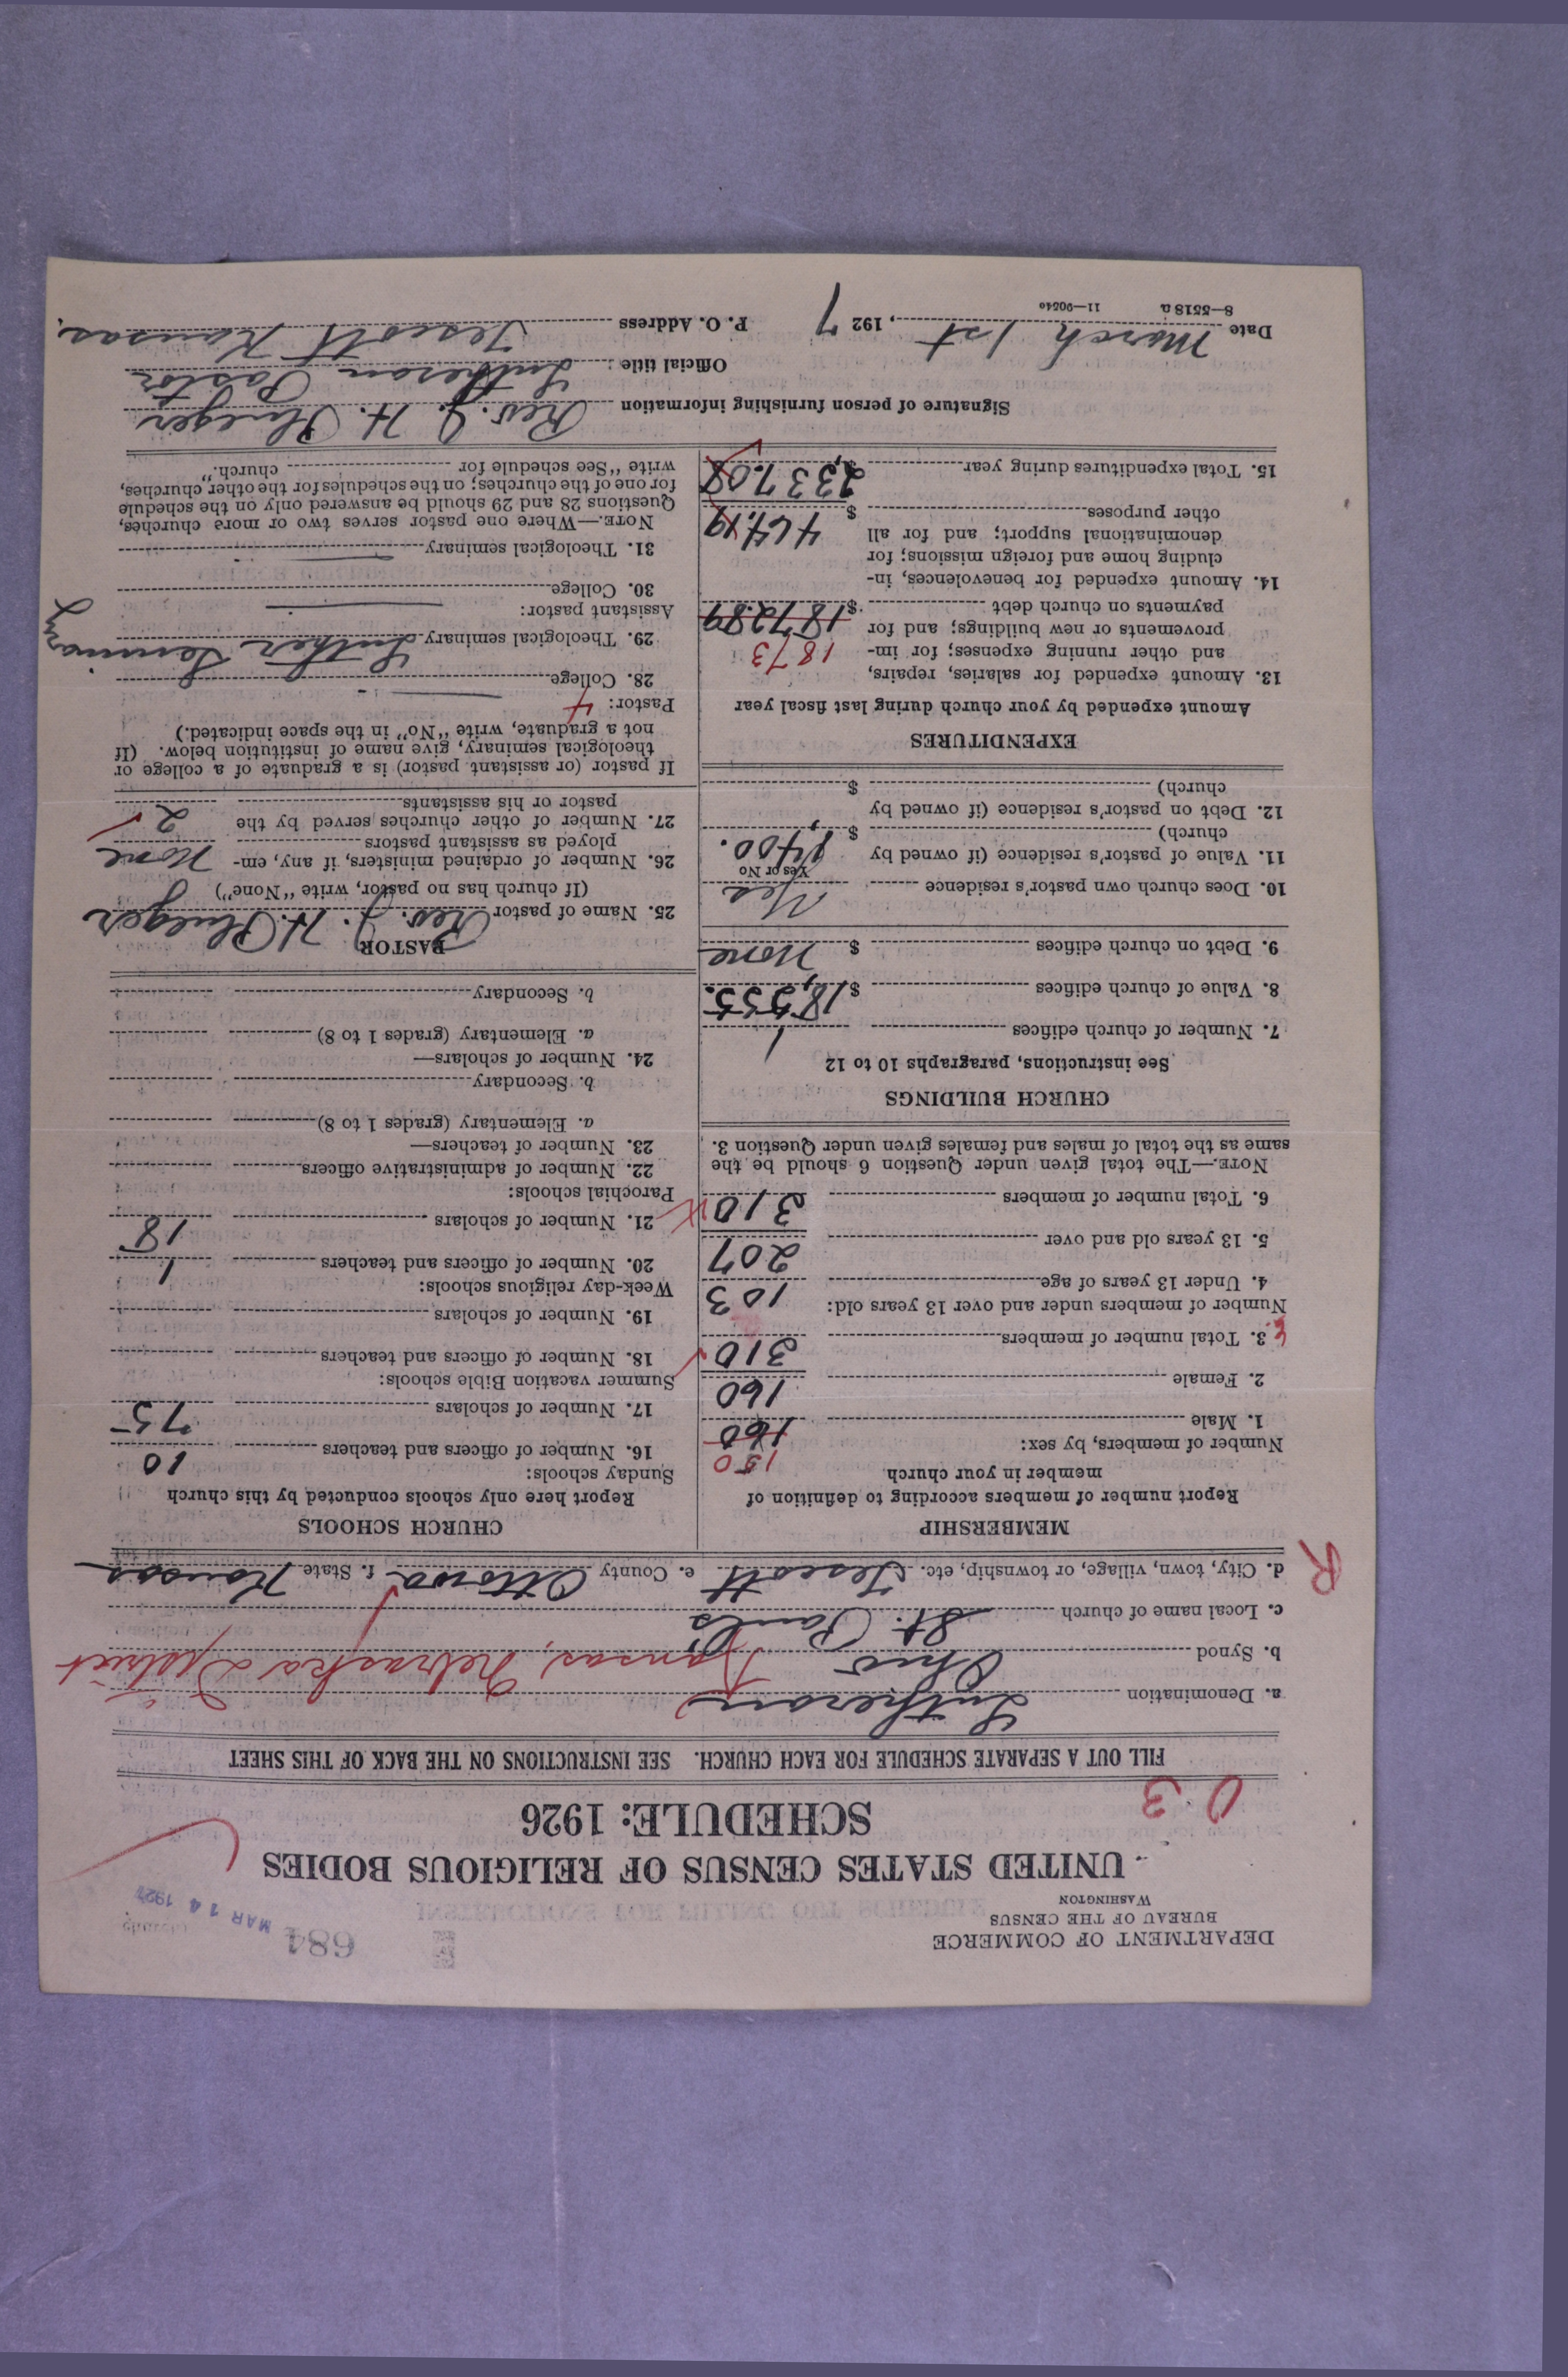 DEPARTMENT OF COMMERCE
BUREAU OF THE CENSUS
WASHINGTON
684
MAR 14 1927
UNITED STATES CENSUS OF RELIGIOUS BODIES
SCHEDULE: 1926
0 3
FILL OUT A SEPARATE SCHEDULE FOR EACH CHURCH. SEE INSTRUCTIONS ON THE BACK OF THIS SHEET
a. Denomination Lutheran
b. Synod Ohio Kansas, Nebraska District
c. Local name of church St. Paul's
d. City, town, village, or township, etc. Tescott e. County Ottowa f. State Kansas
R
MEMBERSHIP
Report number of members according to definition of
member in your church
Number of members, by sex: 150
1. Male 160
2. Female 160
3. Total number of members 310
Number of members under and over 13 years old:
4. Under 13 years of age 103
5. 13 years old and over 207
6. Total number of members 310
NOTE.—The total given under Question 6 should be the
same as the total of males and females given under Question 3.
CHURCH BUILDINGS
See instructions, paragraphs 10 to 12
7. Number of church edifices 1
8. Value of church edifices $18,555.
9. Debt on church edifices $ None
10. Does church own pastor's residence Yes
Yes or No
11. Value of pastor's residence (if owned by
church) $ 1,400.
12. Debt on pastor's residence (if owned by
church) $
EXPENDITURES
Amount expended by your church during last fiscal year
13. Amount expended for salaries, repairs,
and other running expenses; for im- 1873
provements or new buildings; and for
payments on church debt $1872.89
14. Amount expended for benevolences, in-
cluding home and foreign missions; for
denominational support; and for all
other purposes $ 464.19
15. Total expenditures during year $ 2,337.08
CHURCH SCHOOLS
Report here only schools conducted by this church
Sunday schools:
16. Number of officers and teachers 10
17. Number of scholars 75
Summer vacation Bible schools:
18. Number of officers and teachers
19. Number of scholars
Week-day religious schools:
20. Number of officers and teachers 1
21. Number of scholars 18
Parochial schools:
22. Number of administrative officers
23. Number of teachers—
a. Elementary (grades 1 to 8)
b. Secondary
24. Number of scholars—
a. Elementary (grades 1 to 8)
b. Secondary
PASTOR
25. Name of pastor Rev. J. H. Pflueger
(If church has no pastor, write "None")
26. Number of ordained ministers, if any, em-
ployed as assistant pastors None
27. Number of other churches served by the
pastor or his assistants 2
If pastor (or assistant pastor) is a graduate of a college or
theological seminary, give name of institution below. (If
not a graduate, write "No" in the space indicated.)
Pastor: 4
28. College
29. Theological seminary Luther Seminary
Assistant pastor:
30. College
31. Theological seminary
NOTE.—Where one pastor serves two or more churches,
Questions 28 and 29 should be answered only on the schedule
for one of the churches; on the schedules for the other churches,
write "See schedule for church."
Signature of person furnishing information Rev. J. H. Pflueger
Official title Lutheran Pastor
Date March 1st, 1927 P. O. Address Tescott Kansas.
8—5518 a 11—90540